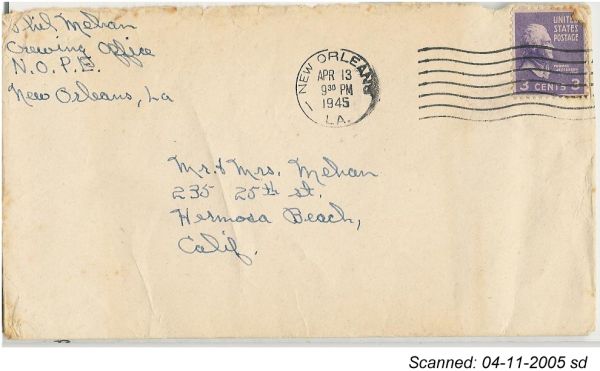 Phil Mehan
Crewing Office
N.O.P.E.
New Orleans, La
NEW ORLEANS
1
APR 13
9 30 PM
1945
LA.
UNITED
STATES
POSTAGE
3 CENTS 3
Mr. & Mrs. Mehan
235 25th st.
Hermosa Beach,
Calif.
Scanned: 04-11-2005 sd